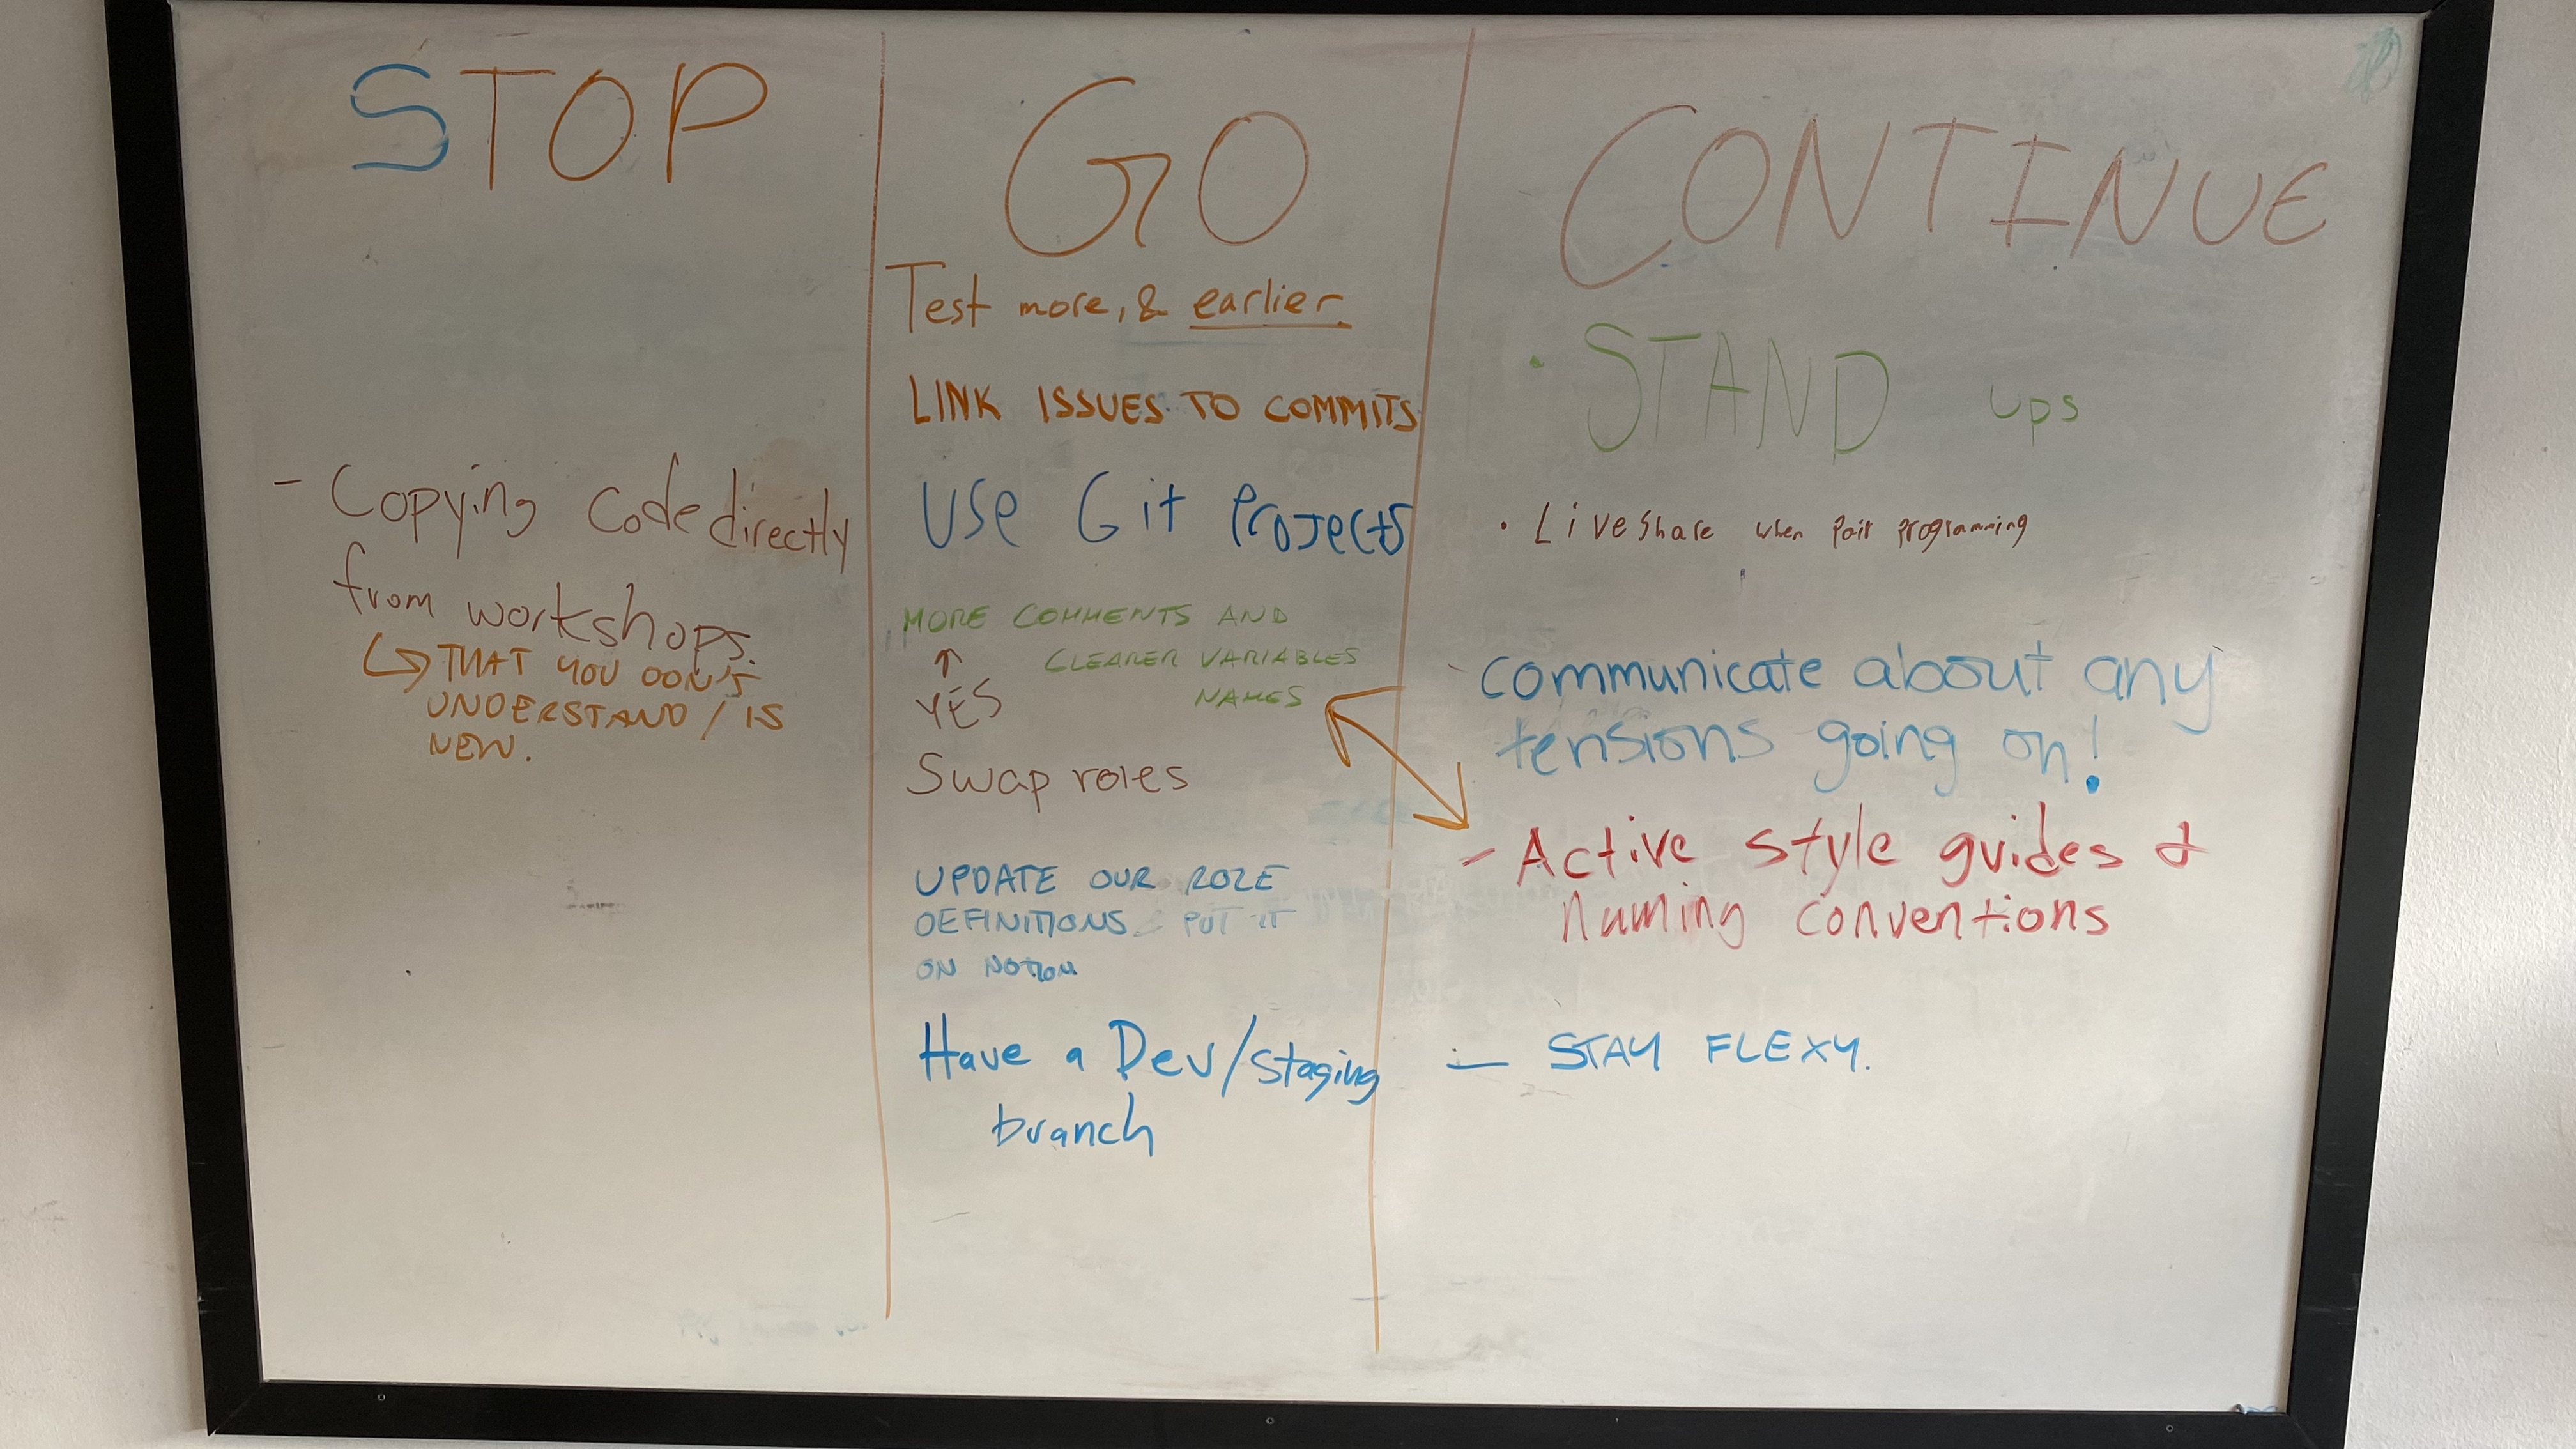 STOP
- Copying code directly
from workshops.
↳ THAT YOU DON'T
UNDERSTAND / IS
NEW.
GO
Test more, & earlier.
LINK ISSUES TO COMMITS
USE Git Projects
MORE COMMENTS AND
CLEARER VARIABLES
NAMES
↑
YES
Swap roles
UPDATE OUR ROLE
DEFINITIONS & PUT IT
ON NOTION
Have a Dev/staging
branch
CONTINUE
• STAND ups
• Liveshare when pair programming
- communicate about any
tensions going on!
- Active style guides &
naming conventions
- STAY FLEXY.